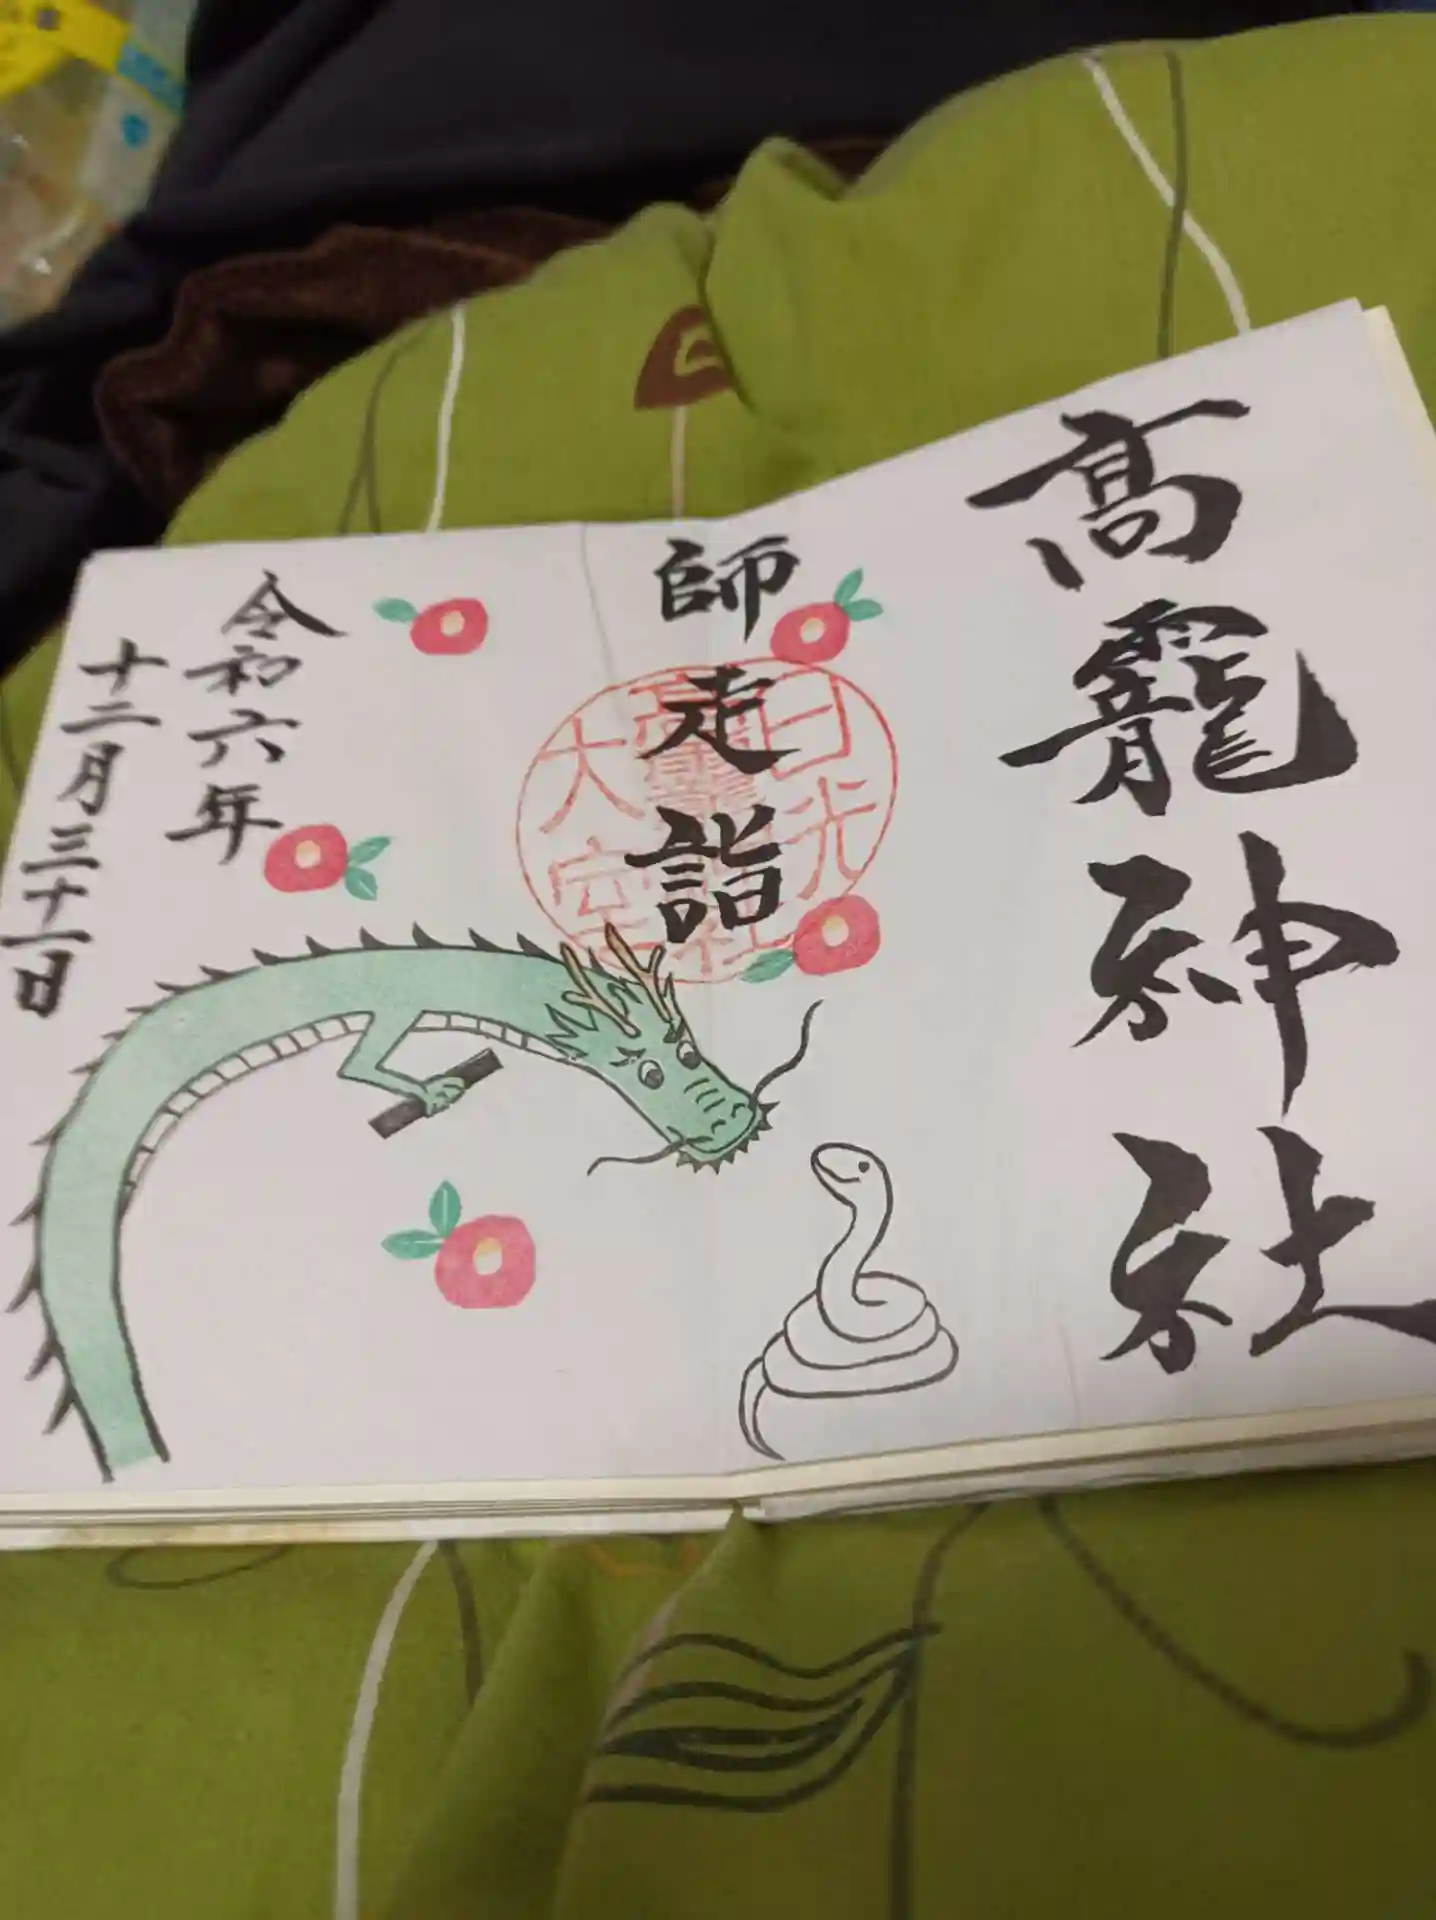 高靇神社
師走詣
日光
高龗神社
大室
令和六年
十二月三十一日